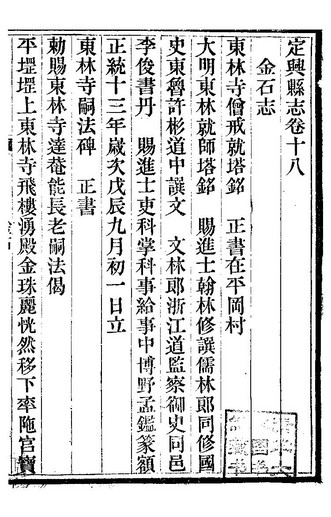 定興縣志卷十八
金石志
東林寺僧戒就塔銘　正書在平岡村
大明東林就師塔銘　賜進士翰林修譔儒林郎同修國
史東魯許彬道中譔文　文林郎浙江道監察御史同邑
李俊書丹　賜進士吏科掌科事給事中博野孟鑑篆額
正統十三年歲次戊辰九月初一日立
東林寺嗣法碑　正書
勅賜東林寺達菴能長老嗣法偈
平壢壢上東林寺飛樓湧殿金珠麗恍然移下率陁宮寶